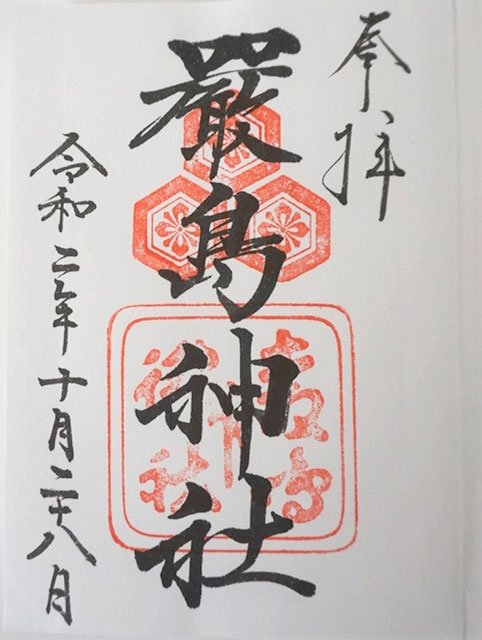 奉拝
嚴島神社
令和二年十月二十八日